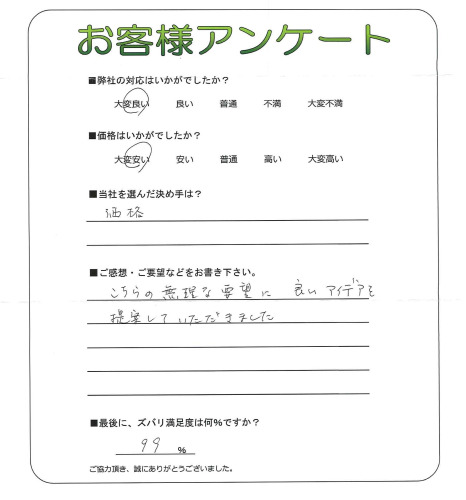 お客様アンケート
■弊社の対応はいかがでしたか？
大変良い 良い 普通 不満 大変不満
■価格はいかがでしたか？
大変安い 安い 普通 高い 大変高い
■当社を選んだ決め手は？
価格
■ご感想・ご要望などをお書き下さい。
こちらの無理な要望に 良いアイデアを
提案していただきました
■最後に、ズバリ満足度は何％ですか？
99 %
ご協力頂き、誠にありがとうございました。